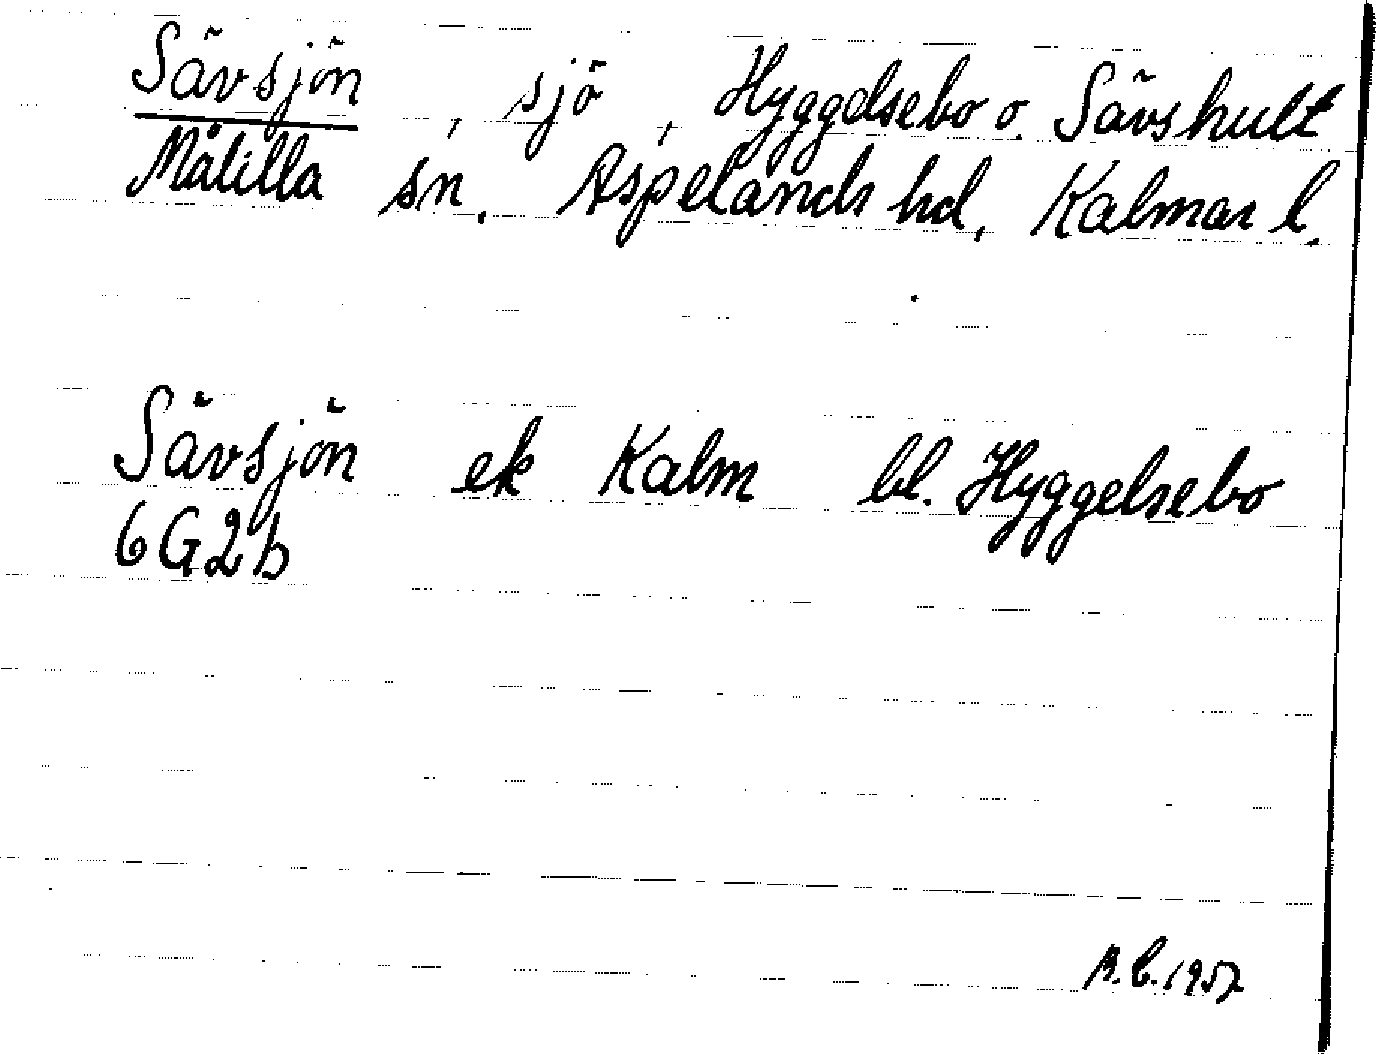 Sävsjön, sjö, Hyggelsebo o. Sävshult
Målilla sn. Aspelands hd, Kalmar l.
Sävsjön ek Kalm bl. Hyggelsebo
6G2b